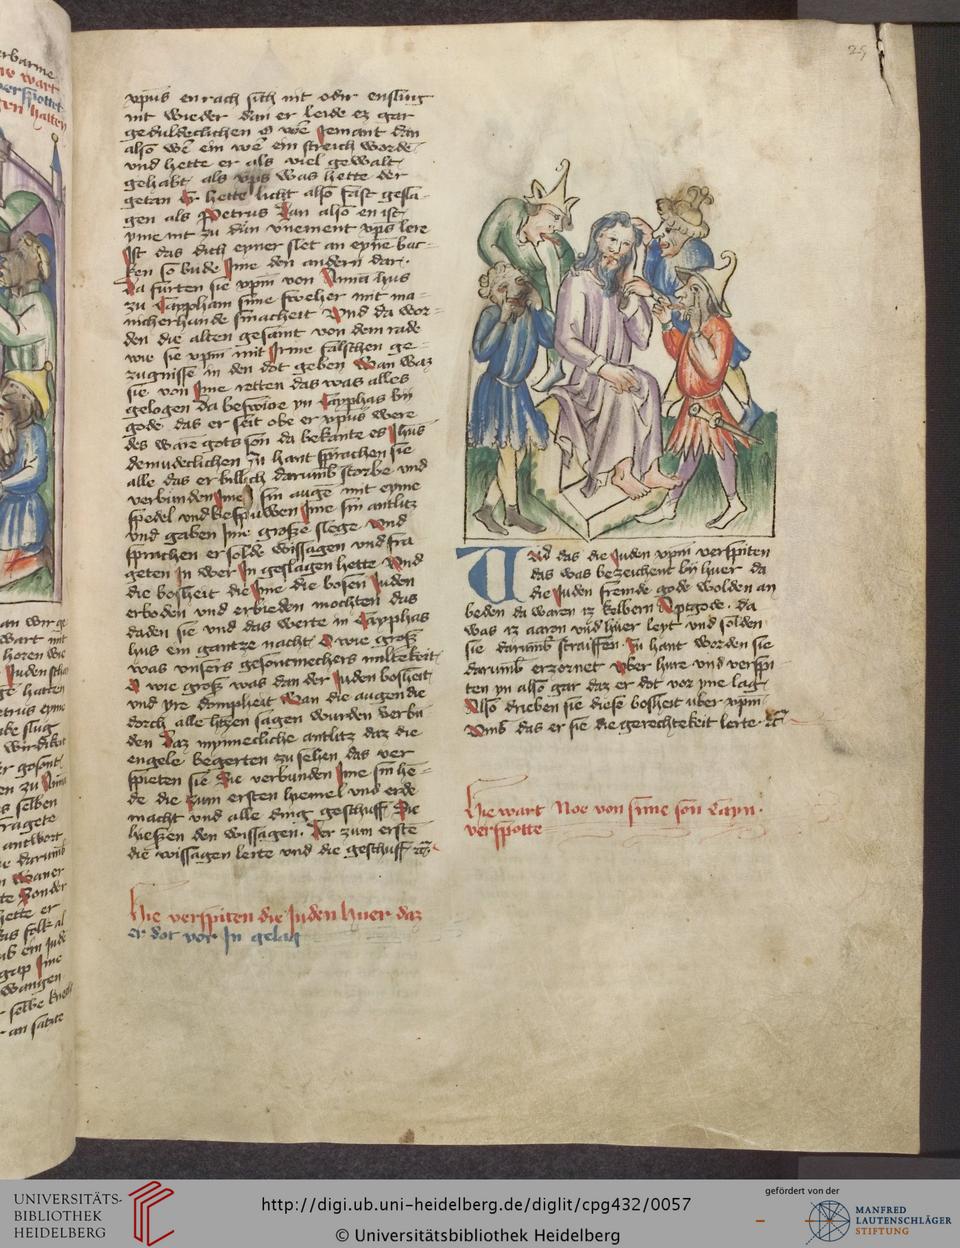 25
xpus enrach sich nit oder enslüng
nit wieder dan er leide ez gar
gedüldeclichen O we jemant dan
also we ein we ein streich worde
vnd hette er als viel gewalt
gehabt als xps was hette der
getan Er hette licht also fast gesla
gen als Petrus Dan also en ist
yme nit zu dün vnement xps lere
Ist das dich eyner slet an eyne bar-
ken so bude Ime den andern dar.
Da fürten sie xpm von Anna hus
zu Caypham sime sweher mit ma-
nicherhande smacheit Vnd da wor-
den die alten gesamt von dem rade
wie sie xpm mit Irme falschen ge-
zugnisse in den dot geben Wan waz
sie von Ime retten das was alles
gelogen da beswüre yn Cayphas by
gode das er seit obe er xpus were
des ware gots son da bekante es Jhus
demudeclichen zu hant sprachen sie
alle das er billich darumb storbe vnd
verbunden Ime sin auge mit eyme
spedel vnd bespüwen Ime sin antlitz
vnd gaben Ime große slege Vnd
sprachen er solde wissagen vnd fra
geten In wer In geslagen hette Vnd
die bosheit die Ime die bosen Juden
erboden vnd erbieden mochten das
daden sie vnd das werte in Cayphas
hus ein gantze nacht O wie groß
was vnsers gesontmechers miltekeit
O wie groß was dan der Juden bosheit
vnd yre dompheit Wan die augen die
dorch alle hertzen sagen wurden verbu
den Daz mynnecliche antlitz daz die
engele begerten zu sehen das ver
spieten sie Sie verbunden Ime sin he-
de die zum ersten hiemel vnd erde
macht vnd alle ding geschuff Sie
hießen den wissagen. Der zum erste
die wissagen lerte vnd die geschuff etc
Hie verspiten die Juden huer daz
er dot vor In gelag
Vnd das die Juden xpm verspiten
das was bezeichent by huer da
die Juden fremde gode wolden an
beden da waren iz kelbern Aptgode. da
was iz aaron vnd huer leyt vnd solden
sie darumb straiffen. Zu hant worden sie
darumb erzornet vber hure vnd verspi
ten yn also gar daz er dot vor yne lag
Also drieben sie diese bosheit uber xpm
Vmb das er sie die gerechtekeit lerte. etc
Hie wart Noe von sime son Cayn.
verspotte
UNIVERSITÄTS-
BIBLIOTHEK
HEIDELBERG
http://digi.ub.uni-heidelberg.de/diglit/cpg432/0057
© Universitätsbibliothek Heidelberg
gefördert von der
MANFRED
LAUTENSCHLÄGER
STIFTUNG